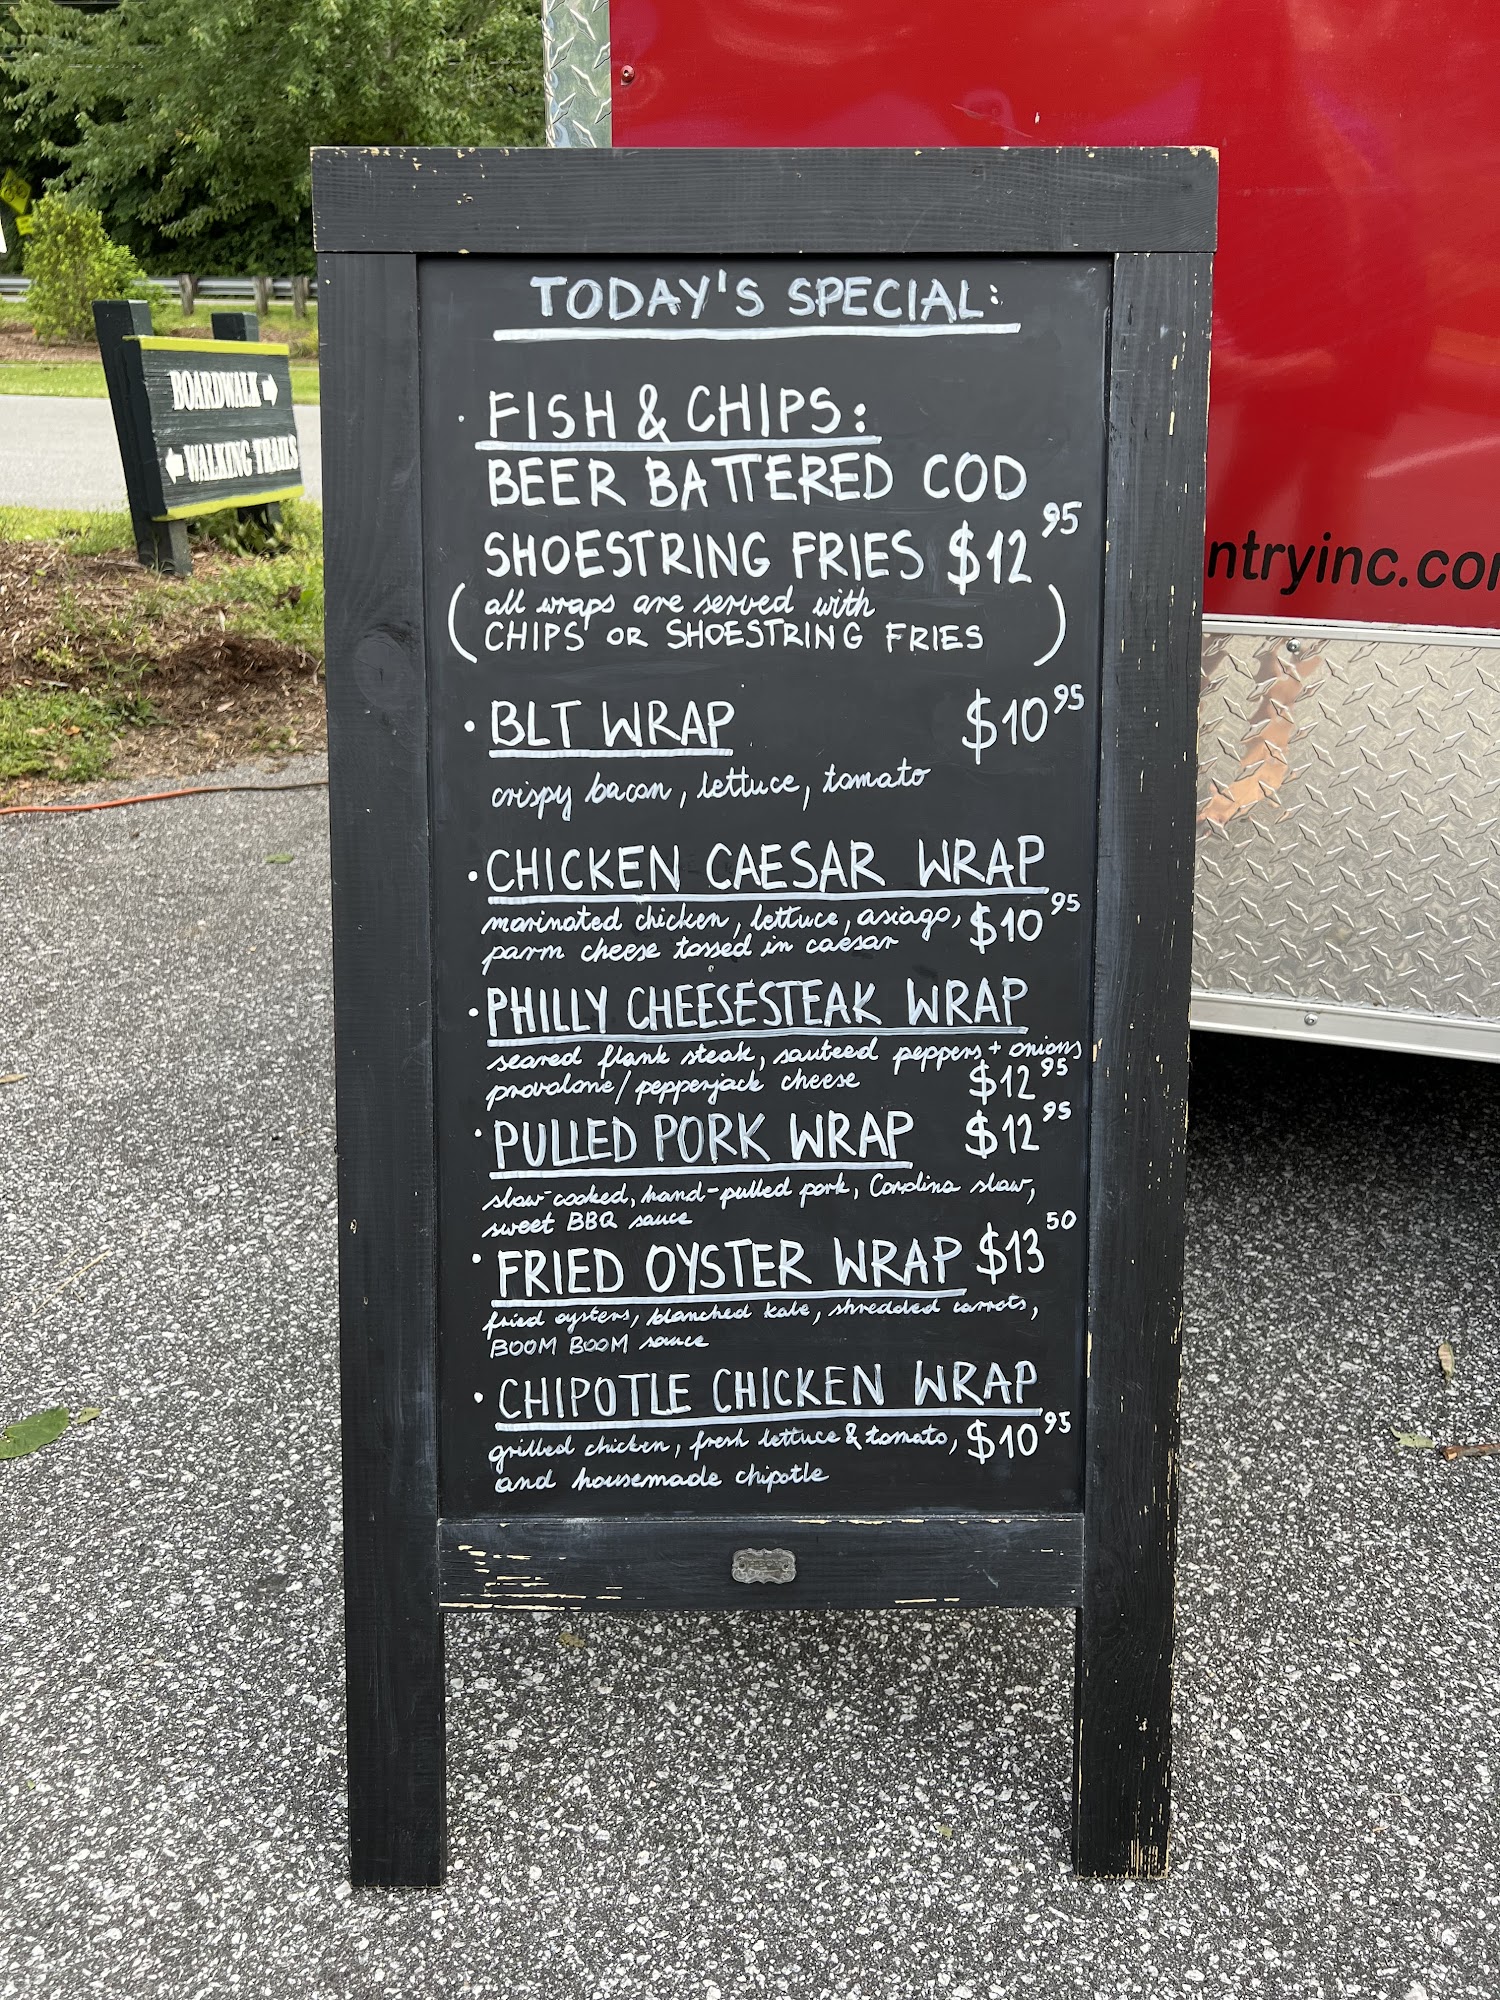 TODAY'S SPECIAL:
· FISH & CHIPS:
BEER BATTERED COD
SHOESTRING FRIES $12 95
(all wraps are served with
CHIPS OR SHOESTRING FRIES)
· BLT WRAP $10 95
crispy bacon, lettuce, tomato
· CHICKEN CAESAR WRAP
marinated chicken, lettuce, asiago, $10 95
parm cheese tossed in caesar
· PHILLY CHEESESTEAK WRAP
seared flank steak, sauteed peppers + onions
provolone/pepperjack cheese $12 95
· PULLED PORK WRAP $12 95
slow-cooked, hand-pulled pork, Carolina slaw,
sweet BBQ sauce
· FRIED OYSTER WRAP $13 50
fried oysters, blanched kale, shredded carrots,
BOOM BOOM sauce
· CHIPOTLE CHICKEN WRAP
grilled chicken, fresh lettuce & tomato, $10 95
and housemade chipotle
BOARDWALK →
← WALKING TRAILS
ntryinc.co